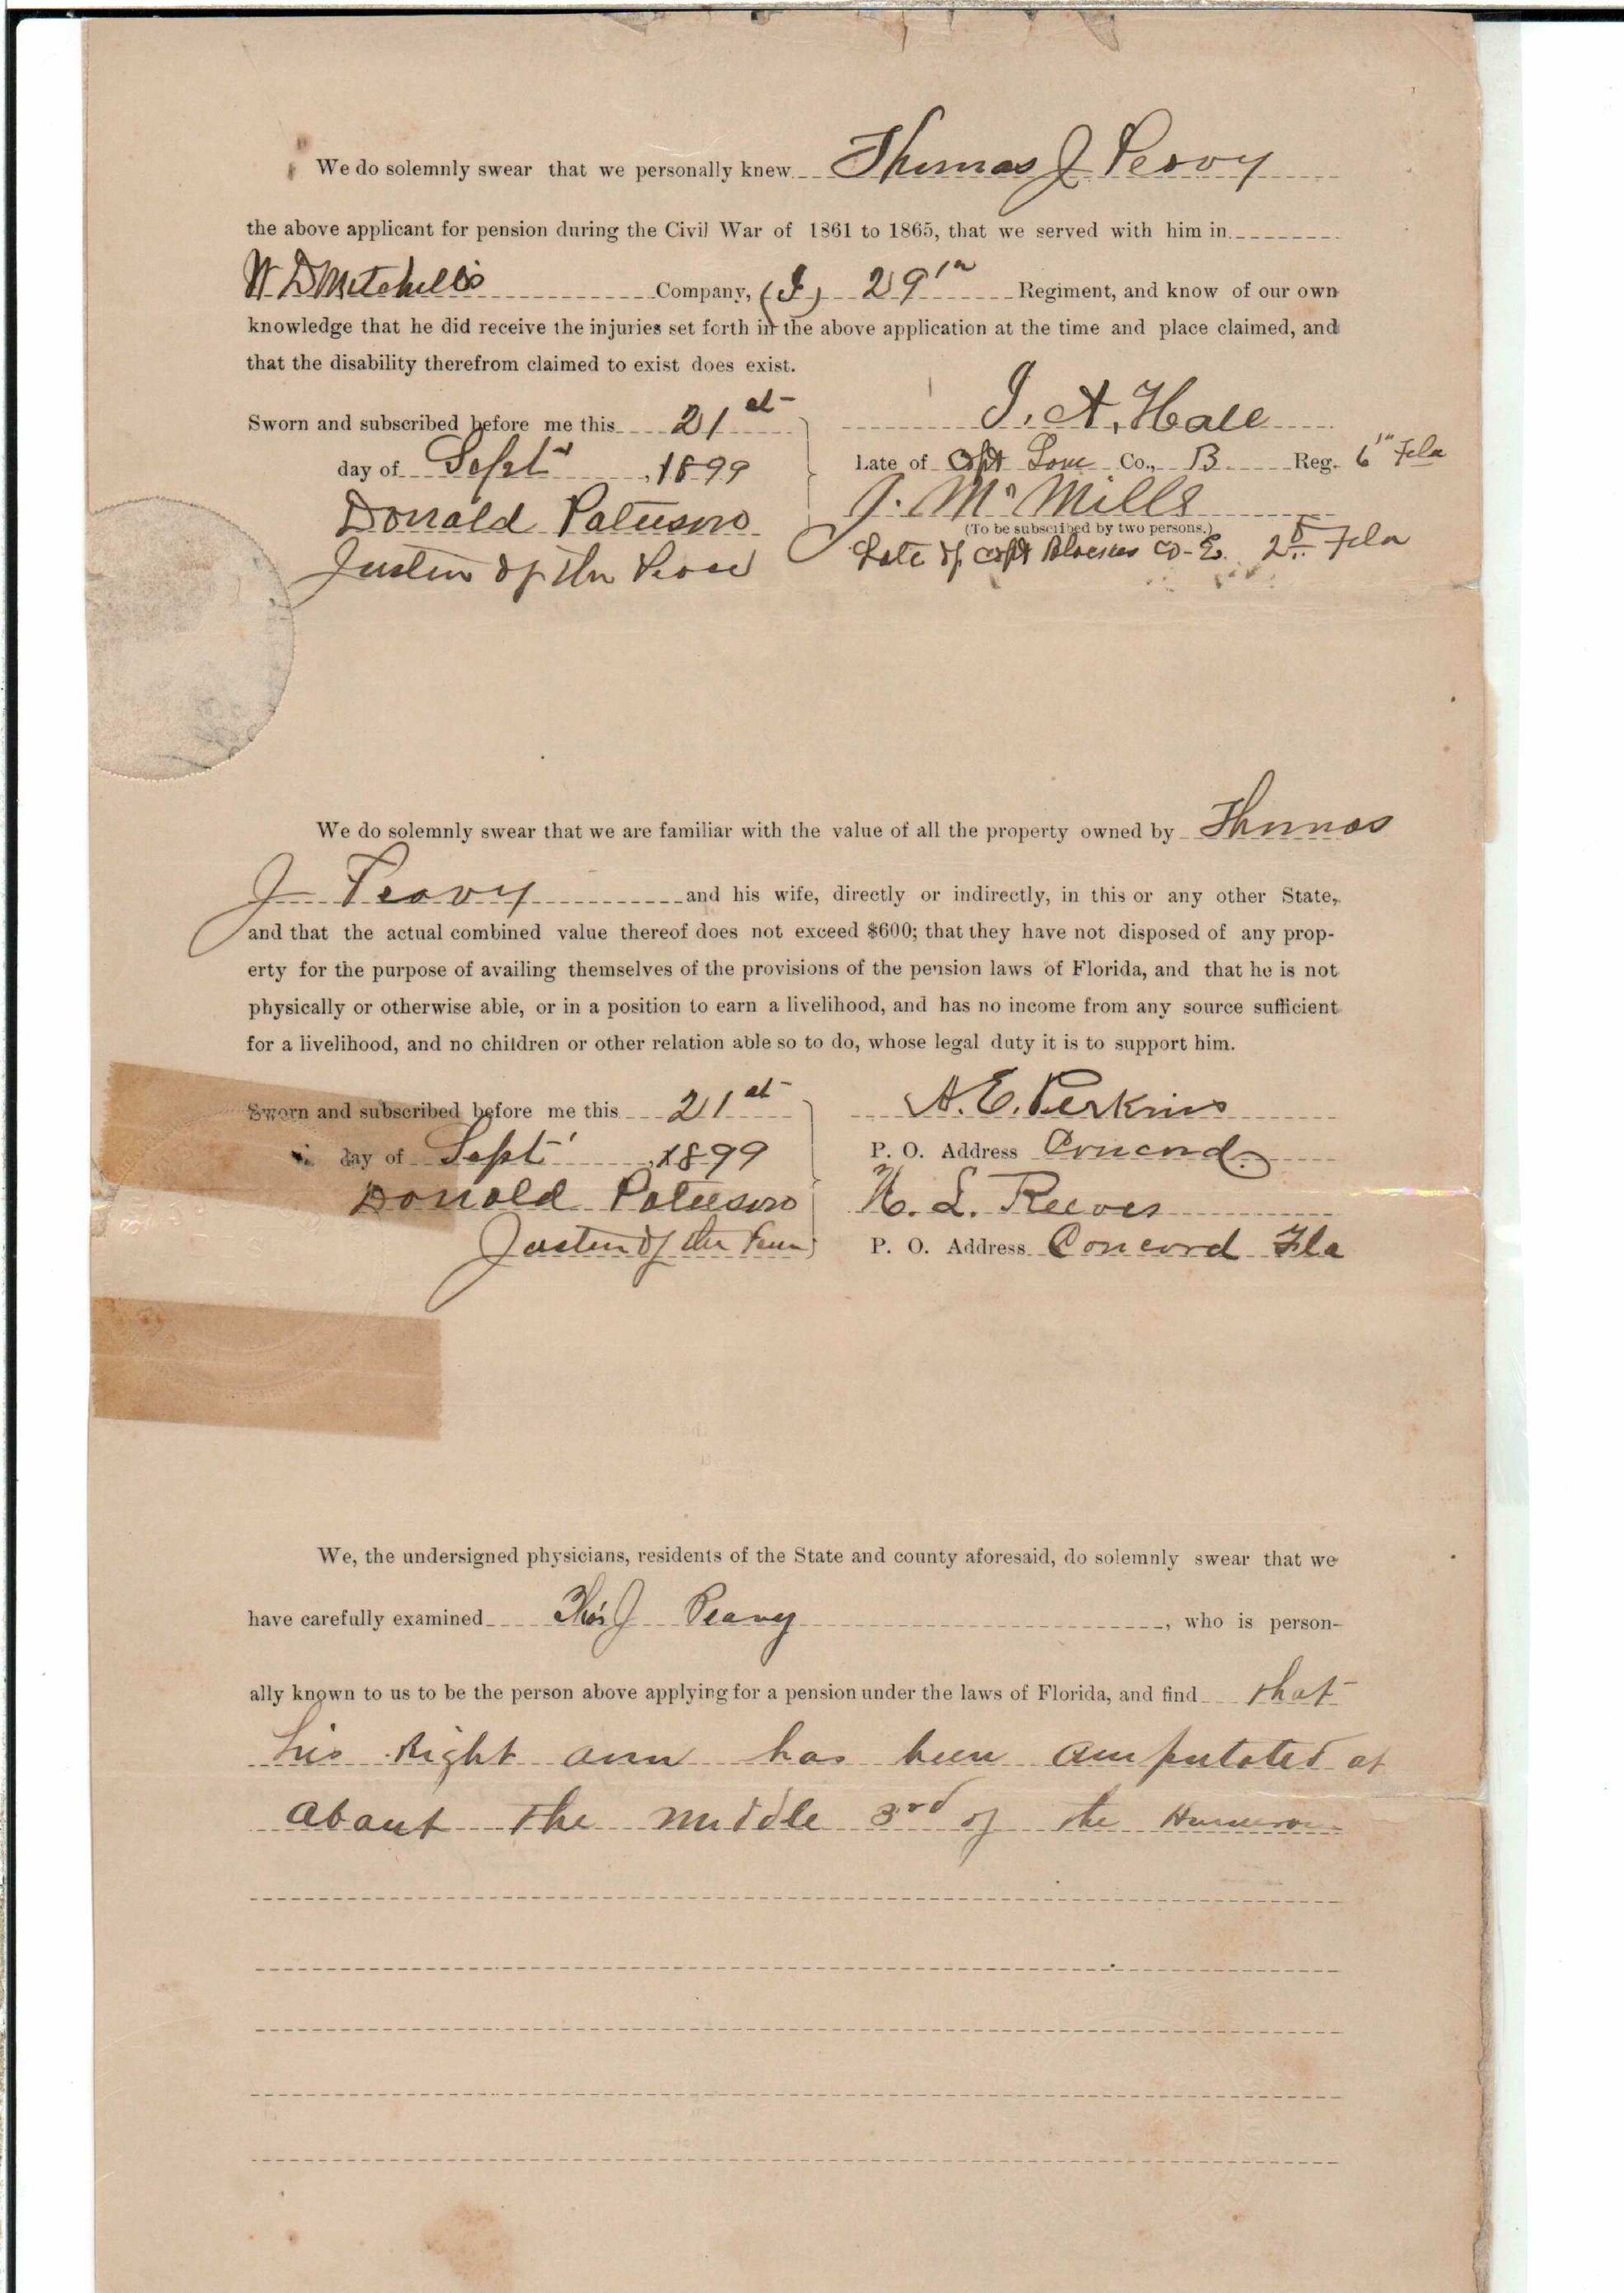 We do solemnly swear that we personally knew Thomas J Peavy
the above applicant for pension during the Civil War of 1861 to 1865, that we served with him in
W D Mitchell's Company, (I) 29th Regiment, and know of our own
knowledge that he did receive the injuries set forth in the above application at the time and place claimed, and
that the disability therefrom claimed to exist does exist.
Sworn and subscribed before me this 21st
day of Sept 1899
Donald
Justice of the Peace
A. Hall
Late of Capt Love Co., B Reg. 6th Fla
J. Mc Mills
(To be subscribed by two persons.)
Late of Capt Co- E. 2d Fla
We do solemnly swear that we are familiar with the value of all the property owned by Thomas
J Peavy and his wife, directly or indirectly, in this or any other State,
and that the actual combined value thereof does not exceed $600; that they have not disposed of any prop-
erty for the purpose of availing themselves of the provisions of the pension laws of Florida, and that he is not
physically or otherwise able, or in a position to earn a livelihood, and has no income from any source sufficient
for a livelihood, and no children or other relation able so to do, whose legal duty it is to support him.
Sworn and subscribed before me this 21st
day of Sept' 1899
Donald
Justice of the Peace
A. E. Perkins
P. O. Address Concord
L. Reeves
P. O. Address Concord Fla
We, the undersigned physicians, residents of the State and county aforesaid, do solemnly swear that we
have carefully examined Thos J Peavy, who is person-
ally known to us to be the person above applying for a pension under the laws of Florida, and find that
his Right arm has been amputated at
about the middle 3rd of the Humerus